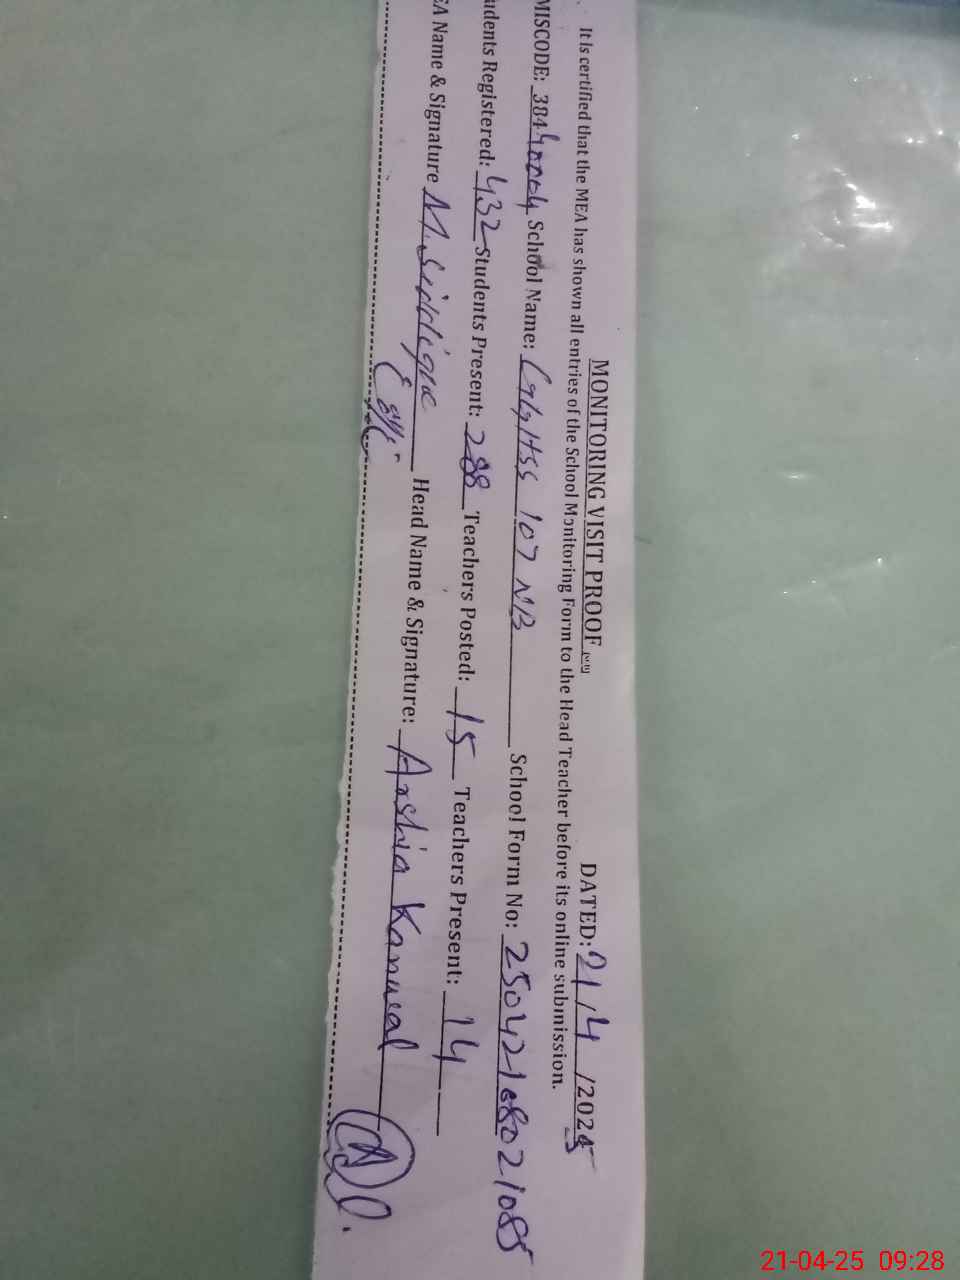 MONITORING VISIT PROOF DATED: 21/4/2025
It is certified that the MEA has shown all entries of the School Monitoring Form to the Head Teacher before its online submission.
MISCODE: 38440004 School Name: GGHSS 107 NB School Form No: 25042108021085
udents Registered: 432 Students Present: 288 Teachers Posted: 15 Teachers Present: 14
EA Name & Signature M. Siddique Head Name & Signature: Arshia Kanwal
21-04-25 09:28